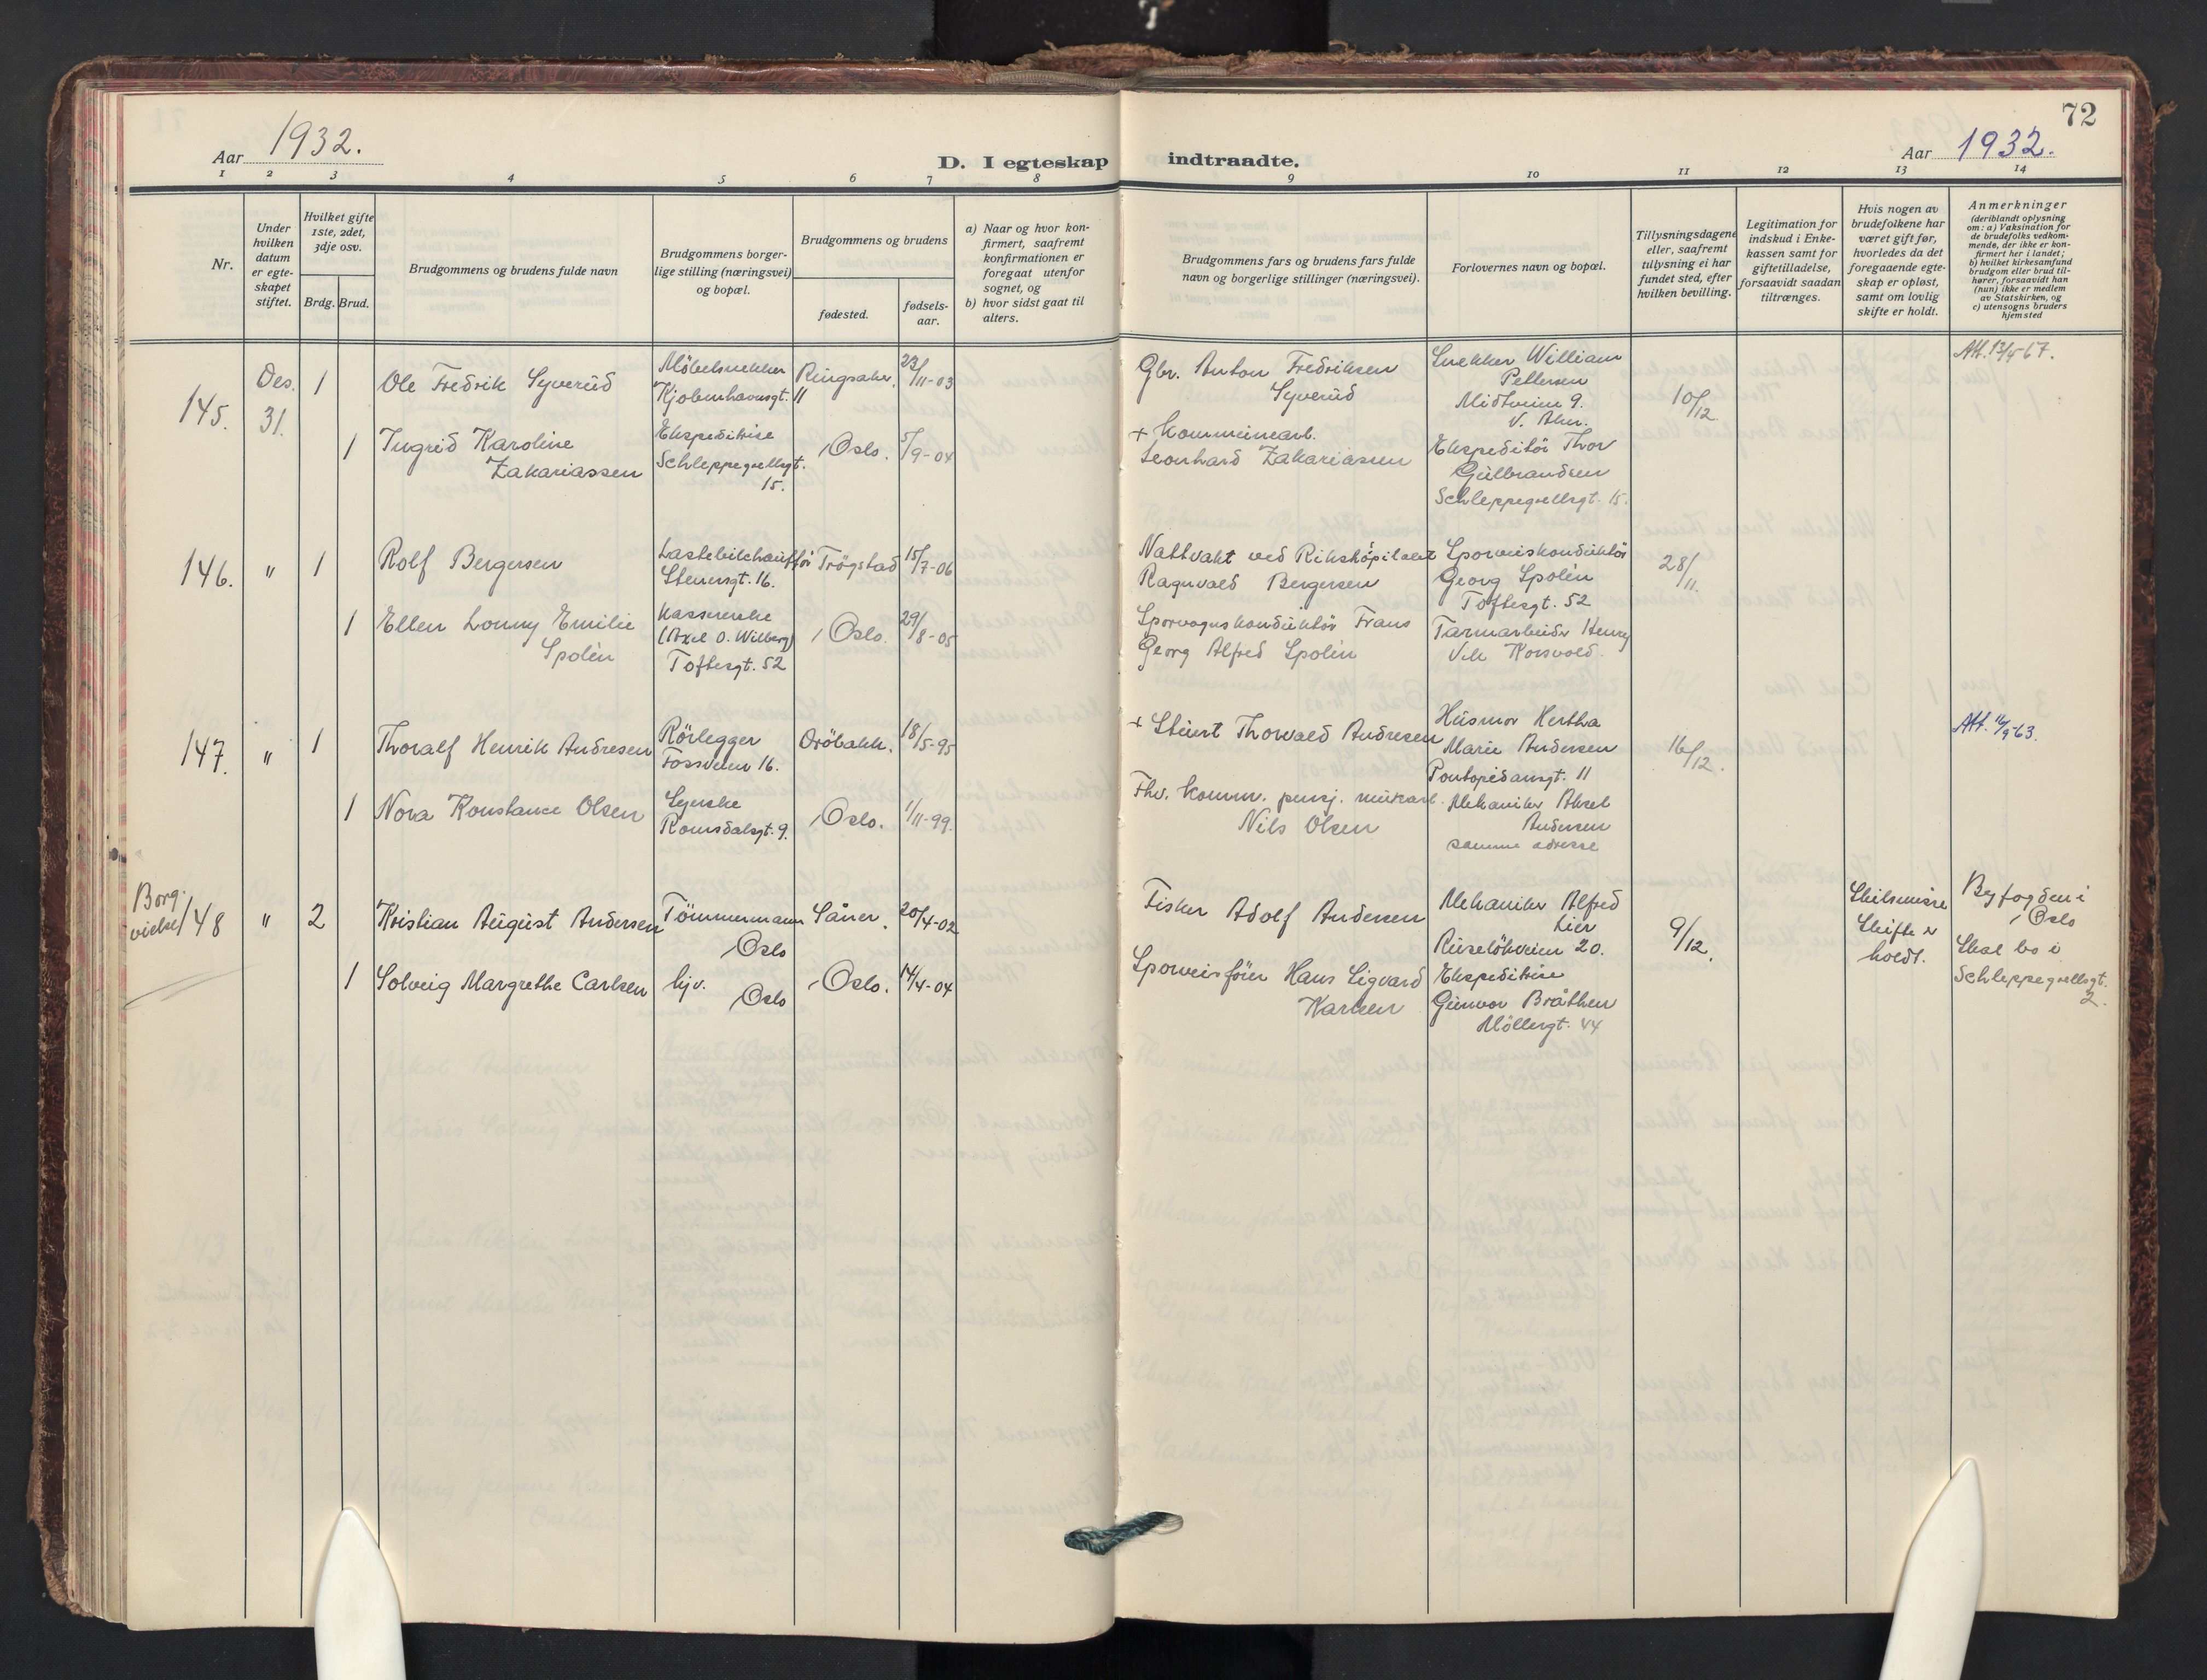 72
Aar 1932.
D. I egteskap indtraadte.
Aar 1932.
1 2 3 4 5 6 7 8 9 10 11 12 13 14
Nr.
Under
hvilken
datum
er egte-
skapet
stiftet.
Hvilket gifte
1ste, 2det,
3dje osv.
Brdg. Brud.
Brudgommens og brudens fulde navn
Brudgommens borger-
lige stilling (næringsvei)
og bopæl.
Brudgommens og brudens
fødested.
fødsels-
aar.
a) Naar og hvor kon-
firmert, saafremt
konfirmationen er
foregaat utenfor
sognet, og
b) hvor sidst gaat til
alters.
Brudgommens fars og brudens fars fulde
navn og borgerlige stillinger (næringsvei).
Forlovernes navn og bopæl.
Tillysningsdagene
eller, saafremt
tillysning ei har
fundet sted, efter
hvilken bevilling.
Legitimation for
indskud i Enke-
kassen samt for
giftetilladelse,
forsaavidt saadan
tiltrænges.
Hvis nogen av
brudefolkene har
været gift før,
hvorledes da det
foregaaende egte-
skap er opløst,
samt om lovlig
skifte er holdt.
Anmerkninger
(deriblandt oplysning
om: a) Vaksination for
de brudefolks vedkom-
mende, der ikke er kon-
firmert her i landet;
b) hvilket kirkesamfund
brudgom eller brud til-
hører, forsaavidt han
(hun) ikke er medlem
av Statskirken, og
c) utensogns bruders
hjemsted
145.
Des.
31.
1
Ole Fredrik Syverüd
Möbelsnekker
Kjøbenhavnsgt. 11
Ringsaker.
23/11-03
Gbr. Anton Fredriksen
Syverüd
Snekker William
Pettersen
Midtveien 9.
V. Aker.
10/12
Att. 13/4-67.
1
Ingrid Karoline
Zakariassen
Ekspeditrise
Schleppegrellsgt.
15.
Oslo.
5/9-04
+ Kommünearb.
Leonhard Zakariassen
Ekspeditör Thor
Gülbrandsen
Schleppegrellsgt. 15.
146.
"
1
Rolf Bergersen
Lastebilchaufför
Stenersgt. 16.
Trögstad
15/7-06
Nattvakt ved Rikshospitalet
Ragnvald Bergersen
Sporveiskondüktör
Georg Spolén
Toftesgt. 52
28/11.
1
Ellen Lonny Emilie
Spolén
Kassererske
(Axel O. Wilberg)
Toftesgt. 52
Oslo.
29/8-05
Sporvognskondüktör Frans
Georg Alfred Spolén
Tarmarbeider Henry
Vik Korsvold.
147.
"
1
Thoralf Henrik Andresen
Rörlegger
Fossveien 16.
Dröbakk.
18/5-95
+ Stüert Thorvald Andresen
Hüsmor Hertha
Marie Andersen
Pontopidansgt. 11
16/12.
Att. 16/9-63.
1
Nora Konstance Olsen
Syerske
Romsdalsgt. 9.
Oslo.
1/11-99.
Fhv. komm. pensj. mürarb.
Nils Olsen
Mekaniker Aksel
Andersen
samme adresse
Borg.
vielse
148
"
2
Kristian Aügüst Andersen
Tömmermann
Oslo
Såner.
20/4-02
Fisker Adolf Andersen
Mekaniker Alfred
Lier
Rüseløkveien 20.
9/12.
Skilsmisse
Skifte er
holdt.
Byfogden i
Oslo
Skal bo i
Schleppegrellsgt.
2.
1
Solveig Margrethe Carlsen
hjv.
Oslo
Oslo.
14/4-04
Sporveisförer Hans Sigvard
Karlsen
Ekspeditrise
Günvor Bråthen
Möllergt. 44